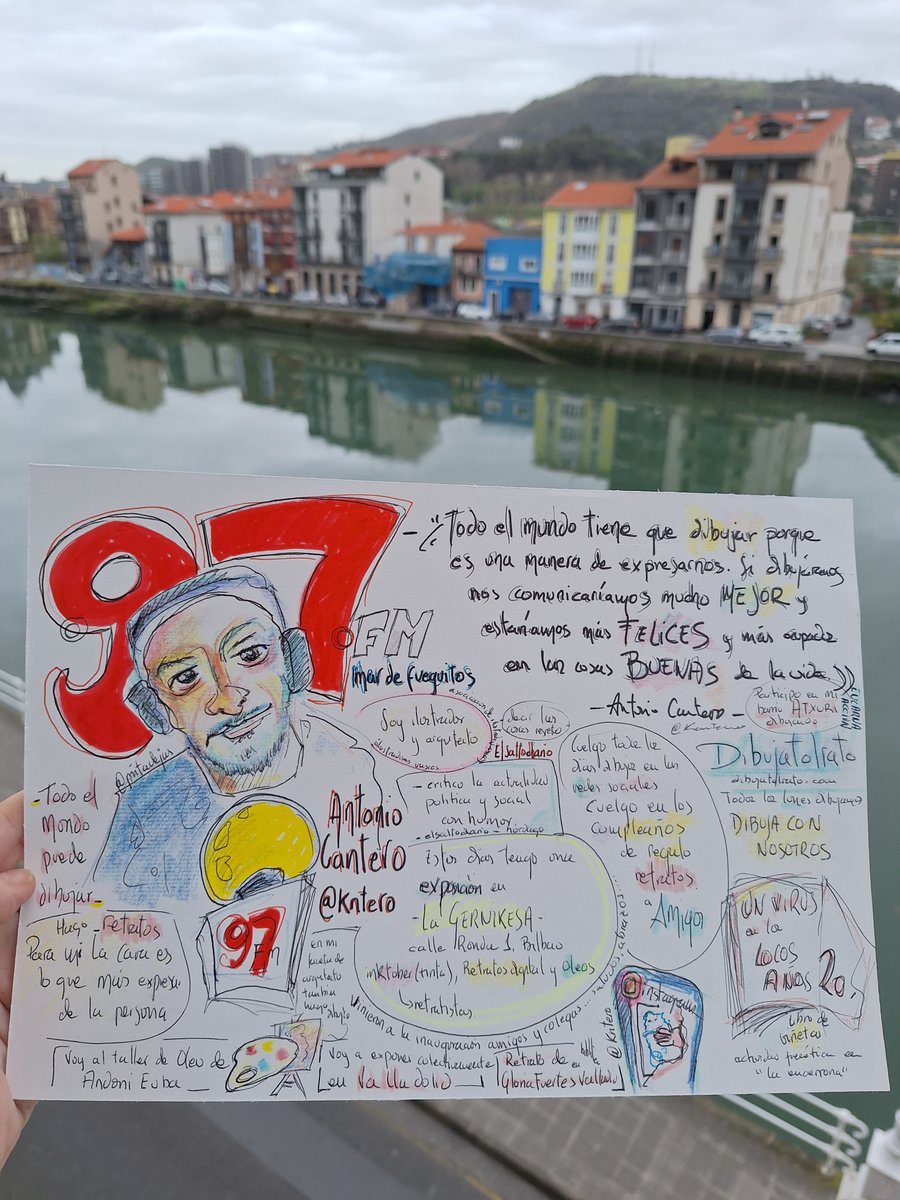 97
FM
mar de fueguitos
"Todo el mundo tiene que dibujar porque
es una manera de expresarnos. Si dibujáramos
nos comunicaríamos mucho MEJOR y
estaríamos más FELICES y más
en las cosas BUENAS de la vida"
- Antonio Cantero -
Participo en mi
barrio ATXURI
dibujando
Soy ilustrador
y arquitecto
decir las
cosas
Elsaltodiario
- critico la actualidad
política y social
con humor.
- elsaltodiario - hordago
Cuelgo todos los
días dibujos en las
redes sociales
Cuelgo en los
cumpleaños
de regalo
retratos
a
Amigos
Dibujatolrato
dibujatolrato.com
Todos los lunes dibujamos
DIBUJA CON
NOSOTROS
- Todo el
mundo
puede
dibujar -
Antonio
Cantero
@kntero
Estos días tengo una
exposición en
- LA GERNIKESA -
calle Ronda 1. Bilbao
inktober (tinta), Retratos digital y óleos
retratistas
Vinieron a la inauguración amigos y colegas...
97
FM
Hugo retratos
Para mí la cara es
lo que más expresa
de la persona
en mi
de
arquitecto
también
hago
Instagram
@Kntero
UN VIRUS
en los
LOCOS
AÑOS 20
Libro de
viñetas
en
"la encerrona"
Voy al taller de Óleo de
Andoni Euba
Voy a exponer colectivamente
en Valladolid
Retrato de
Gloria Fuertes